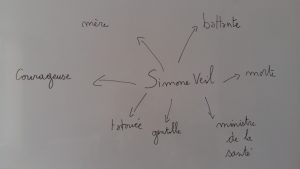 mère
battante
Courageuse
Simone Veil
morte
tatouée
gentille
ministre
de la
santé